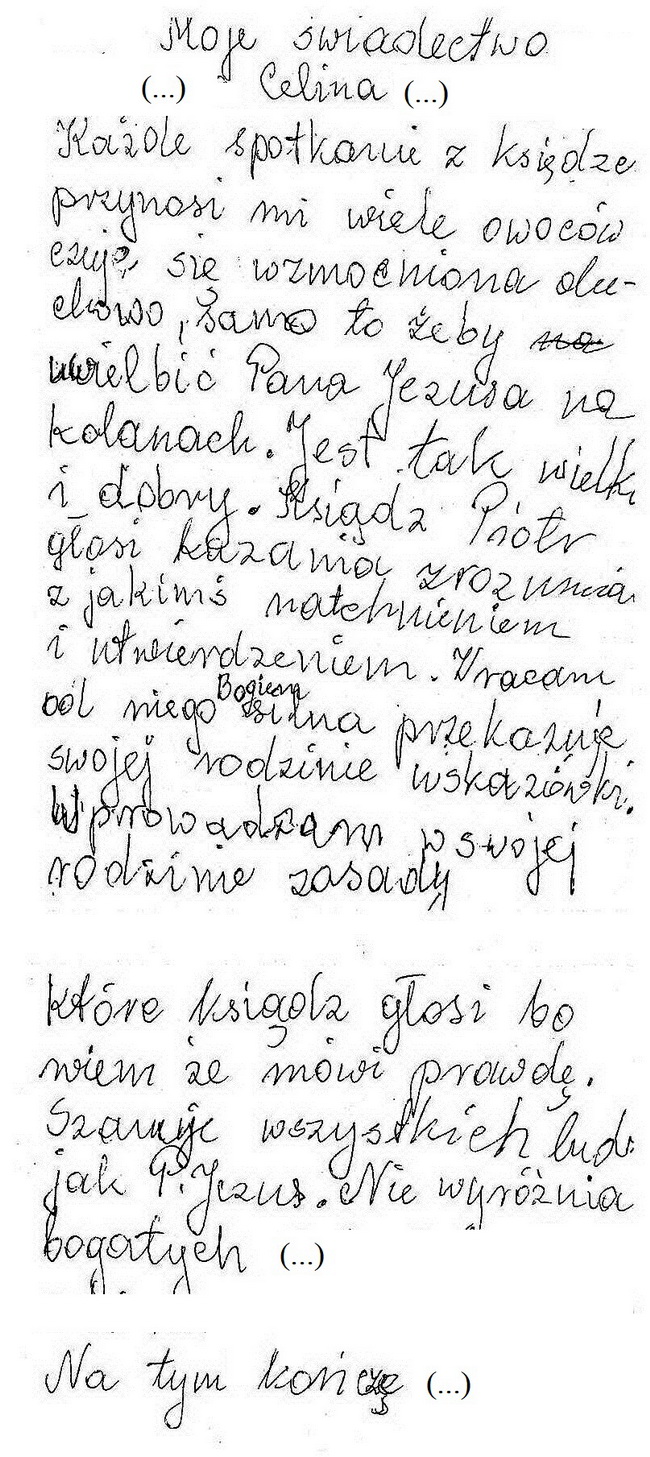 Moje świadectwo
(...) Celina (...)
Każde spotkanie z księdze
przynosi mi wiele owoców
czuję się wzmocniona du-
chowo, samo to żeby na
uwielbić Pana Jezusa na
kolanach. Jest tak wielki
i dobry. Ksiądz Piotr
głosi kazania zrozumia
z jakimś natchnieniem
i utwierdzeniem. Wracam
od niego Bogiem silna przekazuję
swojej rodzinie wskazówki.
Wprowadzam w swojej
rodzinie zasady
które ksiądz głosi bo
wiem że mówi prawdę.
Szanuje wszystkich ludzi
jak P. Jezus. Nie wyróżnia
bogatych (...)
Na tym kończę (...)